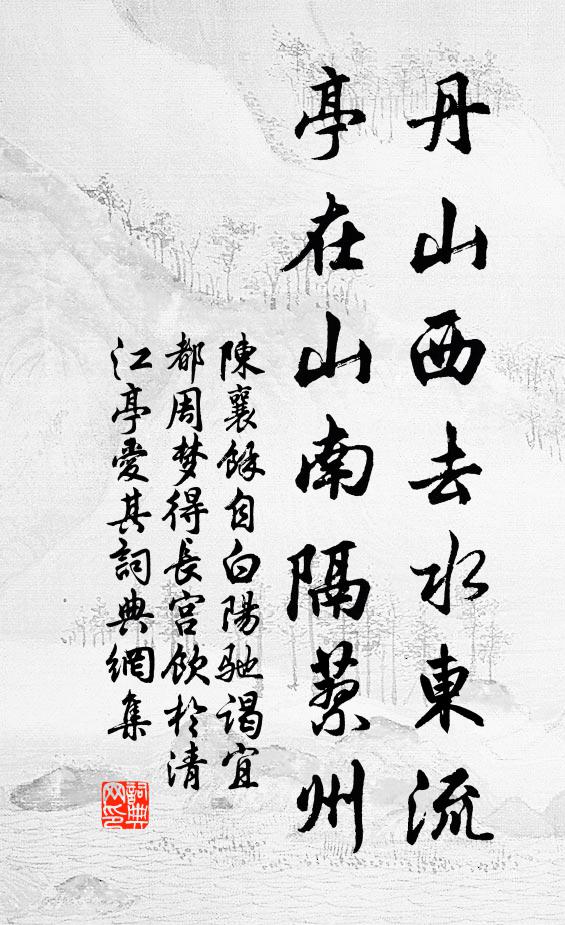 丹山西去水東流
亭在山南隔蔡州
陳襄餘自白陽馳謁宜
都周梦得長官飲於清
江亭愛其詞典網集
詞典网印